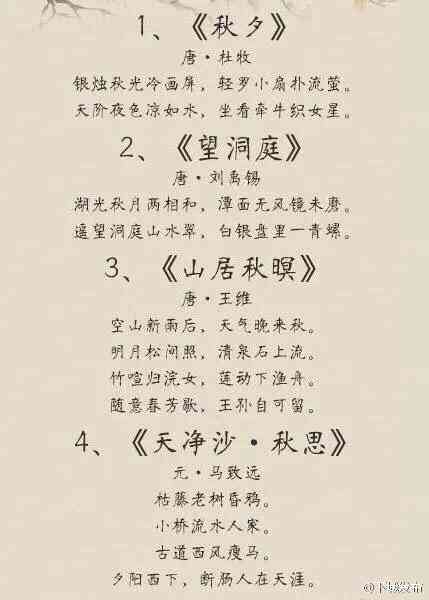 1、《秋夕》
唐·杜牧
银烛秋光冷画屏，轻罗小扇扑流萤。
天阶夜色凉如水，坐看牵牛织女星。
2、《望洞庭》
唐·刘禹锡
湖光秋月两相和，潭面无风镜未磨。
遥望洞庭山水翠，白银盘里一青螺。
3、《山居秋暝》
唐·王维
空山新雨后，天气晚来秋。
明月松间照，清泉石上流。
竹喧归浣女，莲动下渔舟。
随意春芳歇，王孙自可留。
4、《天净沙·秋思》
元·马致远
枯藤老树昏鸦。
小桥流水人家。
古道西风瘦马。
夕阳西下，断肠人在天涯。